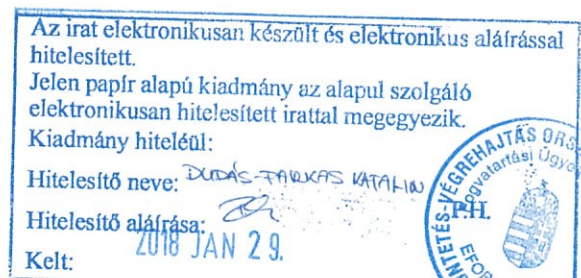 Az irat elektronikusan készült és elektronikus aláírással
hitelesített.
Jelen papír alapú kiadmány az alapul szolgáló
elektronikusan hitelesített irattal megegyezik.
Kiadmány hiteléül:
Hitelesítő neve: DUDÁS-FARKAS KATALIN
Hitelesítő aláírása:
2018 JAN 29.
Kelt:
P.H.
NTETÉS-VÉGREHAJTÁS ORS
ogvatartási Ügye